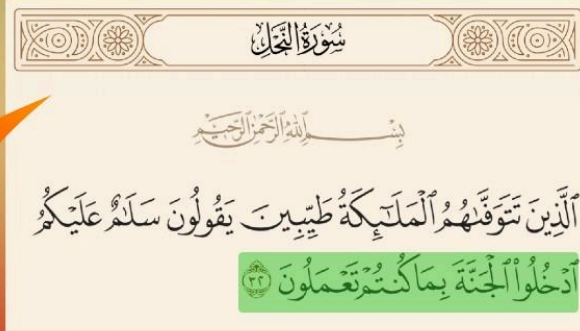 سُورَةُ النَّحْلِ
بِسْمِ ٱللَّهِ ٱلرَّحْمَٰنِ ٱلرَّحِيمِ
ٱلَّذِينَ تَتَوَفَّىٰهُمُ ٱلْمَلَٰٓئِكَةُ طَيِّبِينَ يَقُولُونَ سَلَٰمٌ عَلَيْكُمُ
ٱدْخُلُوا۟ ٱلْجَنَّةَ بِمَا كُنتُمْ تَعْمَلُونَ ٣٢